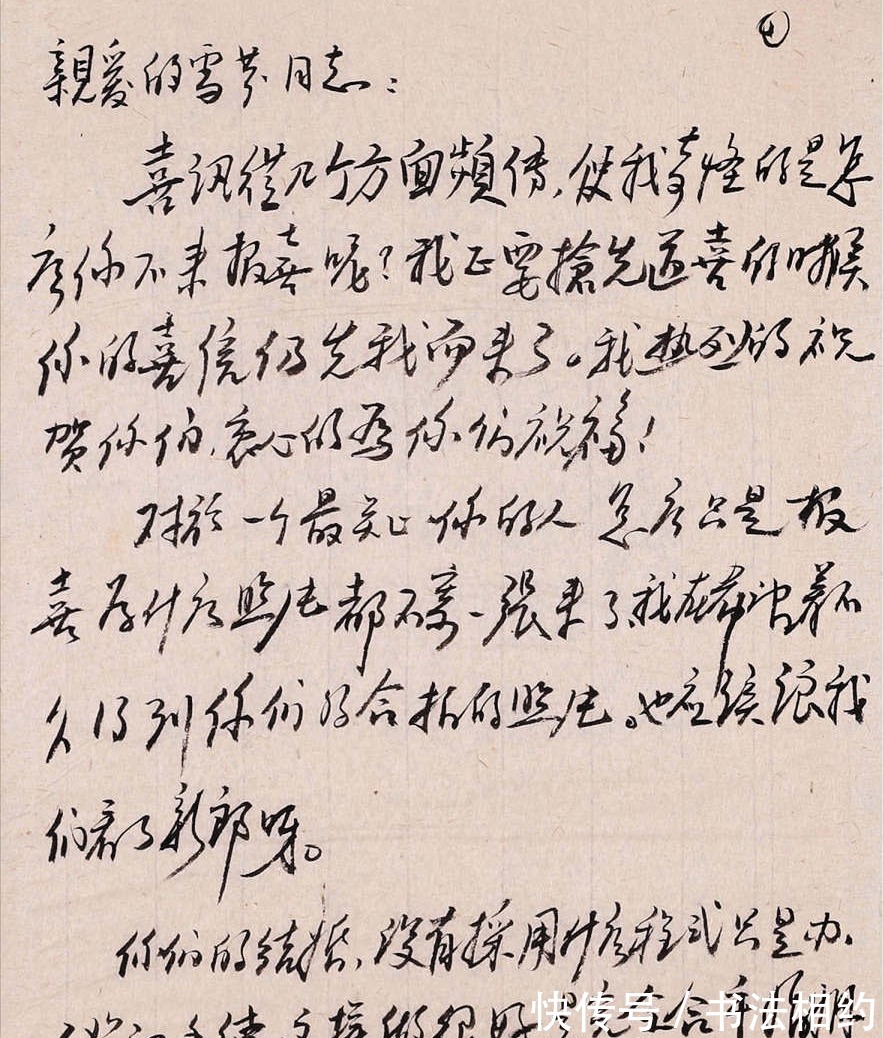 ①
親爱的雪芬同志：
喜訊從几个方面頻传，使我奇怪的是怎
么你不来报喜呢？我正要搶先道喜的时候
你的喜信仍先我而来了。我热烈的祝
贺你们，衷心的为你们祝福！
对於一个最关心你的人怎么只是报
喜为什么照片都不寄一張来了，我在希望着不
久得到你们的合拍的照片。也应該让我
们看了新郎呀。
你们的结婚，没有採用什么程式只是办，
快传号 / 书法相约